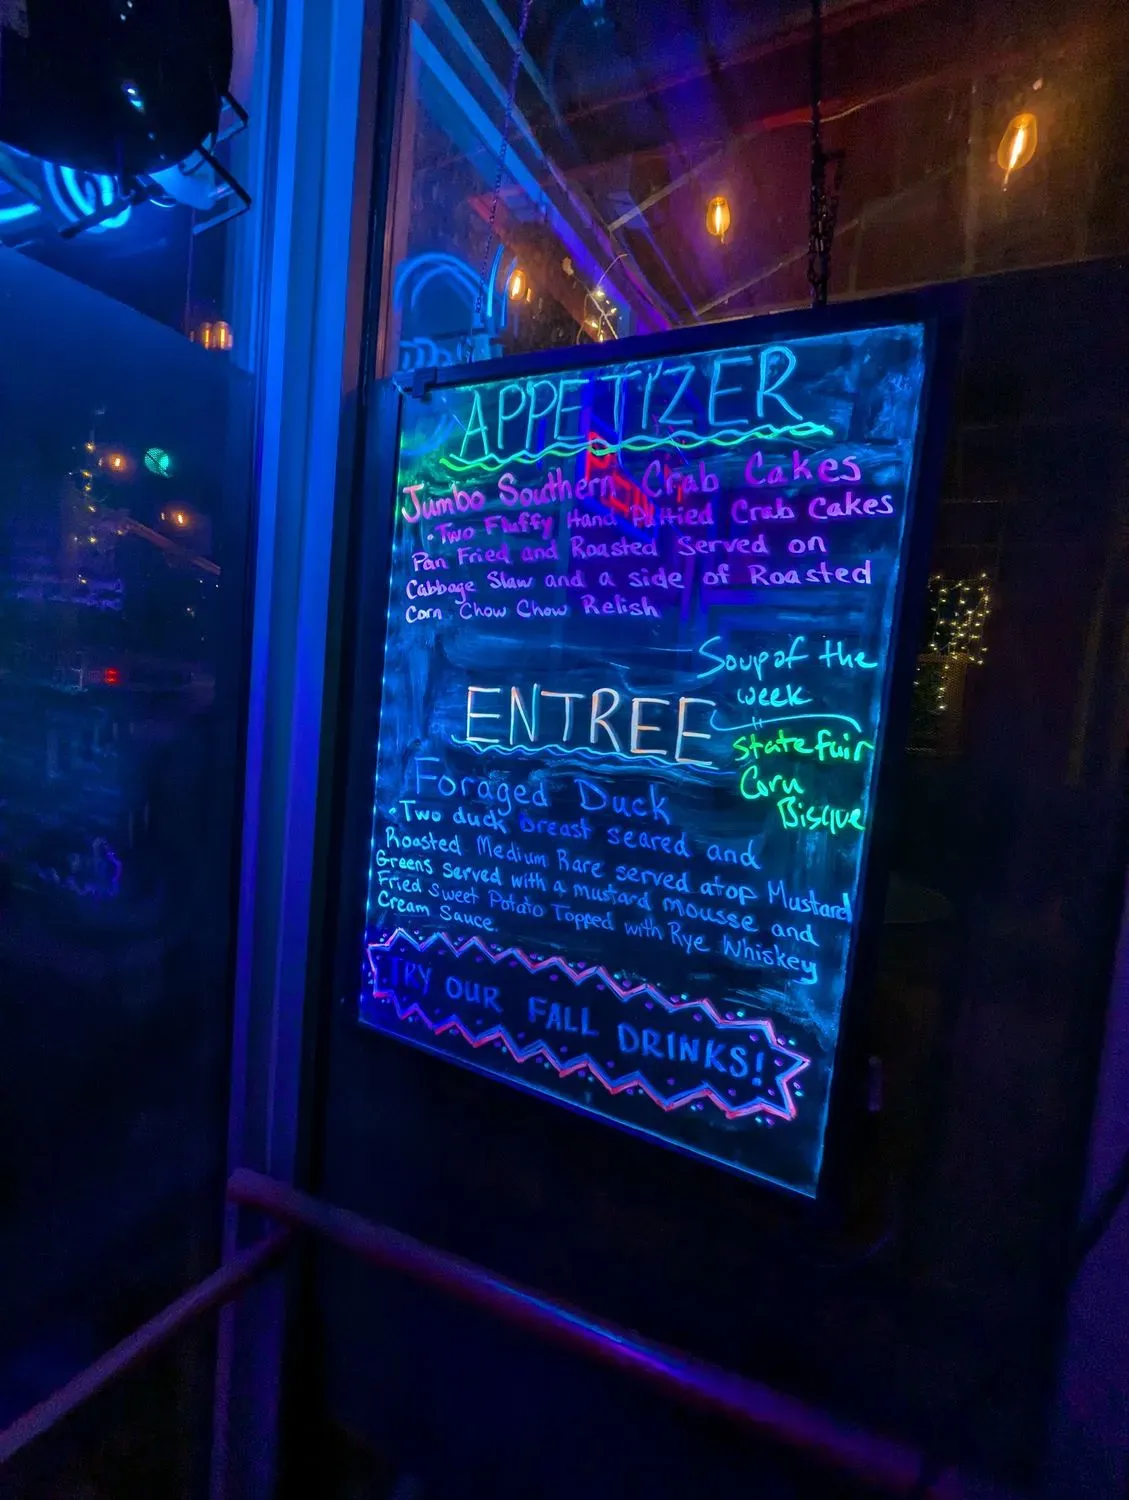 APPETIZER
Jumbo Southern Crab Cakes
• Two Fluffy Hand Pattied Crab Cakes
Pan Fried and Roasted Served on
Cabbage Slaw and a side of Roasted
Corn Chow Chow Relish
Soup of the
week
State fair
Corn
Bisque
ENTREE
Foraged Duck
• Two duck breast seared and
Roasted Medium Rare served atop Mustard
Greens served with a mustard mousse and
Fried Sweet Potato Topped with Rye Whiskey
Cream Sauce.
TRY OUR FALL DRINKS!